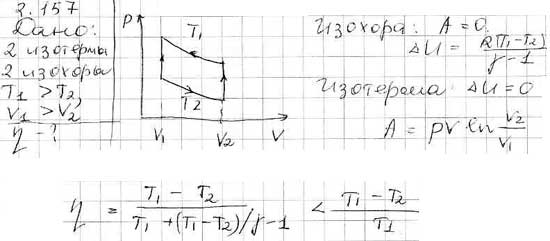 2.157
Дано:
2 изотермы
2 изохоры
T₁ > T₂,
V₁ > V₂
η - ?
P
T₁
T₂
V₁ V₂ V
Изохора: A = 0
ΔU = R(T₁-T₂)/γ-1
Изотерма: ΔU = 0
A = pV ln V₂/V₁
η = T₁ - T₂ / T₁ + (T₁-T₂)/γ-1 < T₁-T₂ / T₁